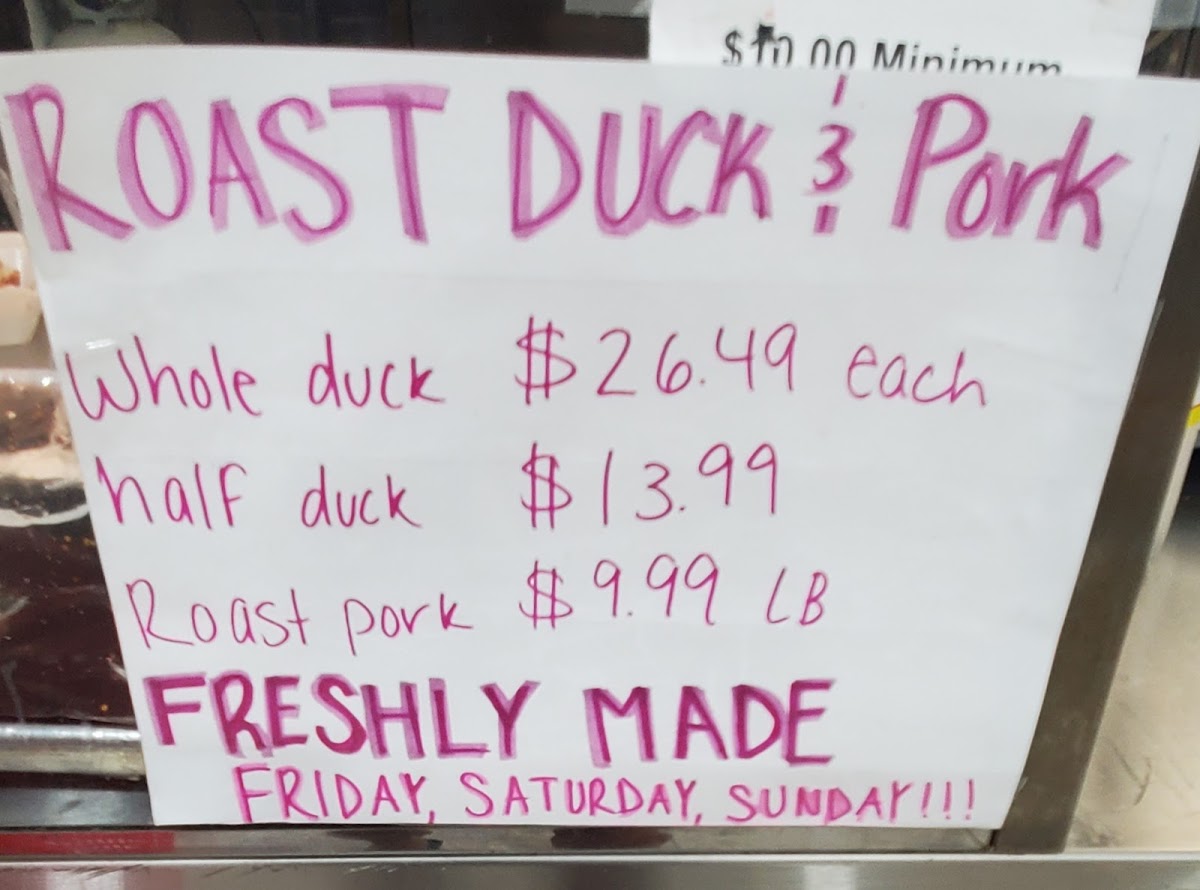 $10.00 Minimum
ROAST DUCK & Pork
Whole duck $26.49 each
half duck $13.99
Roast pork $9.99 LB
FRESHLY MADE
FRIDAY, SATURDAY, SUNDAY!!!